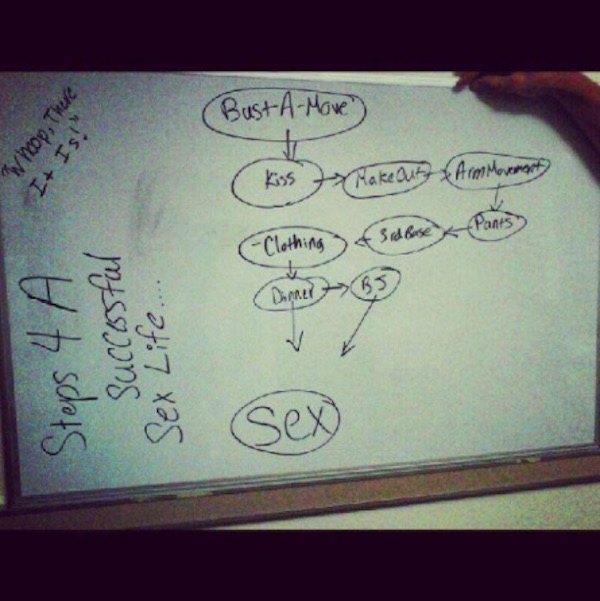 "Whoop, There
It Is!"
Steps 4 A
Successful
Sex Life....
Bust-A-Move
Kiss
Make Out
Arm Movement
Pants
3rd Base
-Clothing
Dinner
BJ
Sex